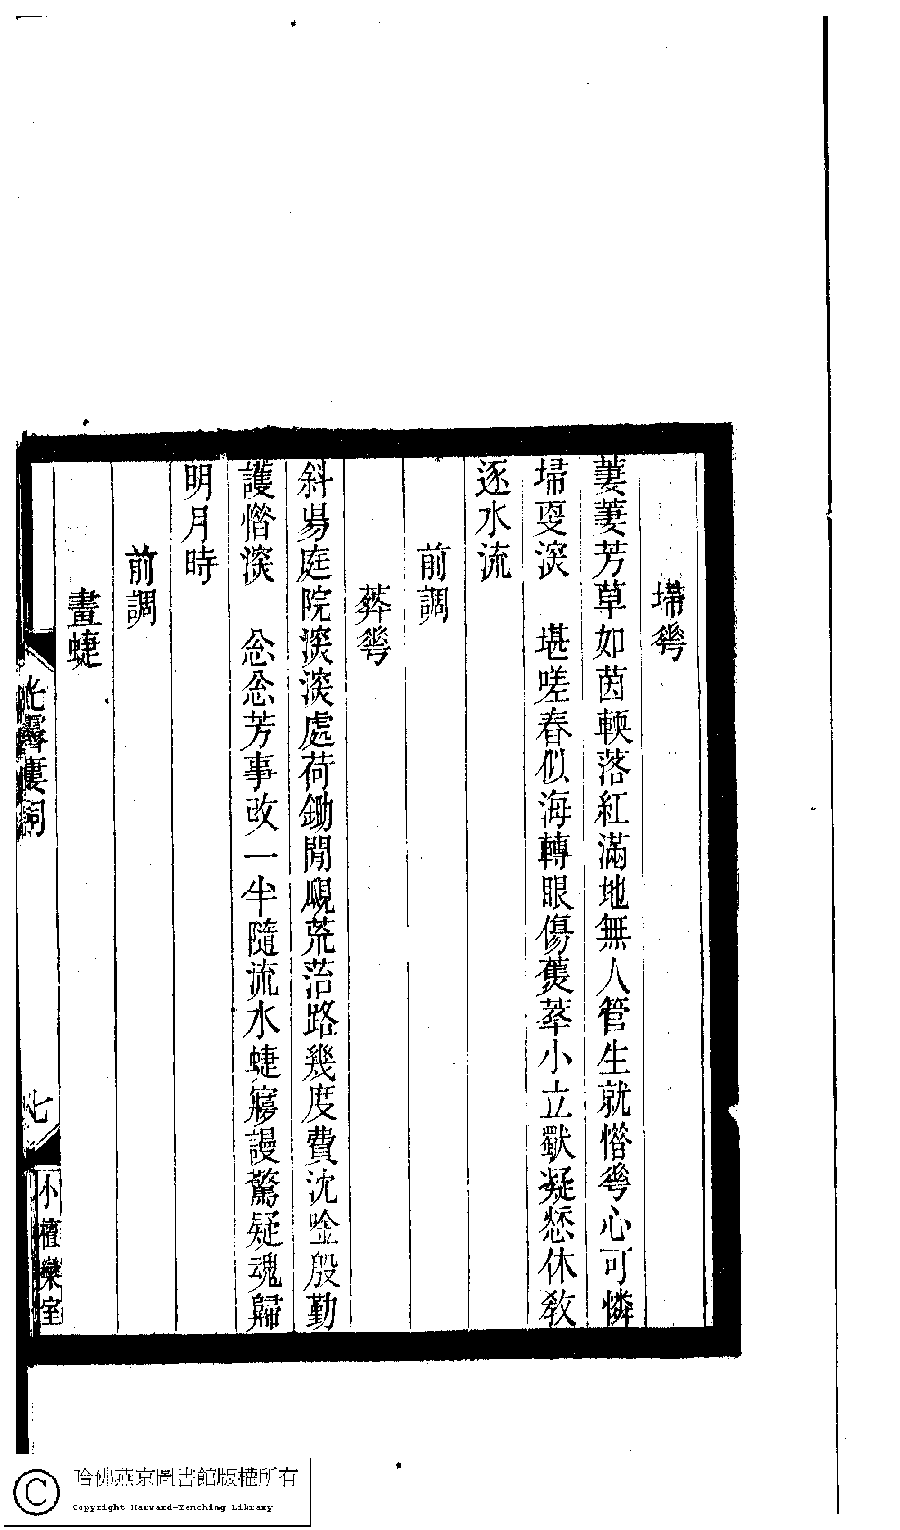 埽𠌶
萋萋芳草如茵輭落紅滿地無人管生就惜𠌶心可憐
埽㪅深　堪嗟春似海轉眼傷蕉萃小立獸凝愁休敎
逐水流
前調
葬𠌶
斜昜庭院深深處荷鋤閒覷荒菭路幾度費沈唫殷勤
護惜深　怱怱芳事改一半隨流水蜨㝱謾驚疑魂歸
明月時
前調
畫蜨
樓詞
七
小檀欒室
哈佛燕京圖書館版權所有
Copyright Harvard-Yenching Library